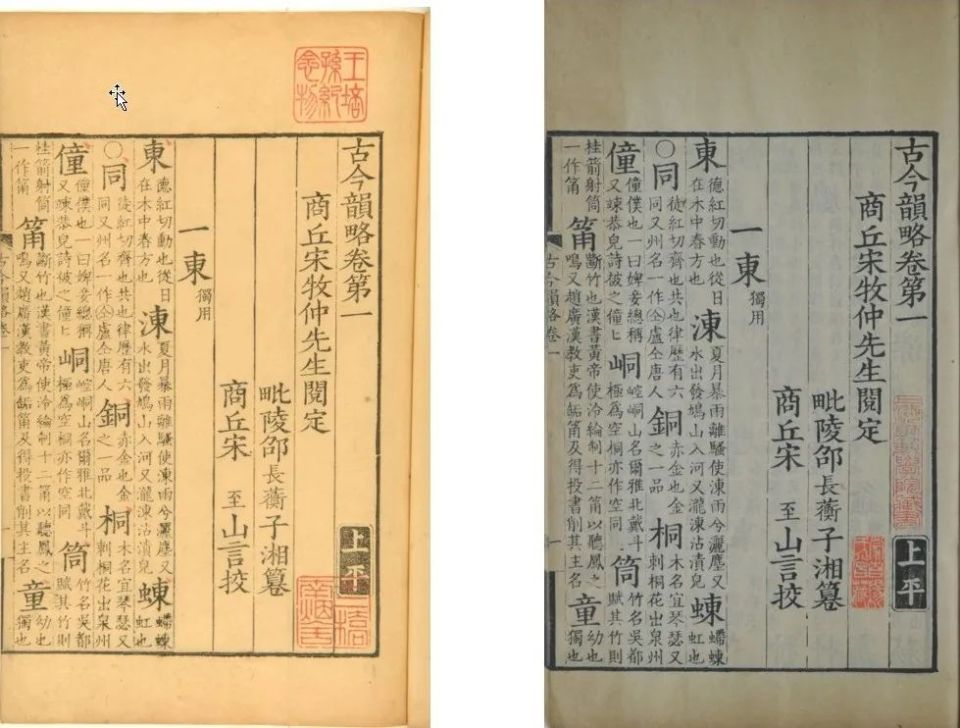 王培孫紀念物
古今韻略卷第一 上平
商丘宋牧仲先生閱定
毗陵邵長蘅子湘纂
商丘宋 至山言挍
一東獨用
東德紅切動也從日在木中春方也 涷夏月暴雨離騷使涷雨兮灑塵又水出發鳩山入河又瀧涷沾漬皃 蝀螮蝀虹也
○同徒紅切齊也共也律歷有六同又州名一作仝盧仝唐人 銅赤金也金之一品 桐木名宜琴瑟又刺桐花出泉州
僮僮僕也一曰婢妾總稱又竦恭皃詩彼之僮匕 峒崆峒山名爾雅北戴斗極為空桐亦作空同 筒竹名吳都賦其竹則
桂箭射筒一作筩 筩斷竹也漢書黃帝使泠綸制十二筩以聽鳳之鳴又趙廣漢教吏為缿筩及得投書削其主名 童幼也獨也
古今韻略卷一
古今韻略卷第一 上平
商丘宋牧仲先生閱定
毗陵邵長蘅子湘纂
商丘宋 至山言挍
一東獨用
東德紅切動也從日在木中春方也 涷夏月暴雨離騷使涷雨兮灑塵又水出發鳩山入河又瀧涷沾漬皃 蝀螮蝀虹也
○同徒紅切齊也共也律歷有六同又州名一作仝盧仝唐人 銅赤金也金之一品 桐木名宜琴瑟又刺桐花出泉州
僮僮僕也一曰婢妾總稱又竦恭皃詩彼之僮匕 峒崆峒山名爾雅北戴斗極為空桐亦作空同 筒竹名吳都賦其竹則
桂箭射筒一作筩 筩斷竹也漢書黃帝使泠綸制十二筩以聽鳳之鳴又趙廣漢教吏為缿筩及得投書削其主名 童幼也獨也
古今韻略卷一